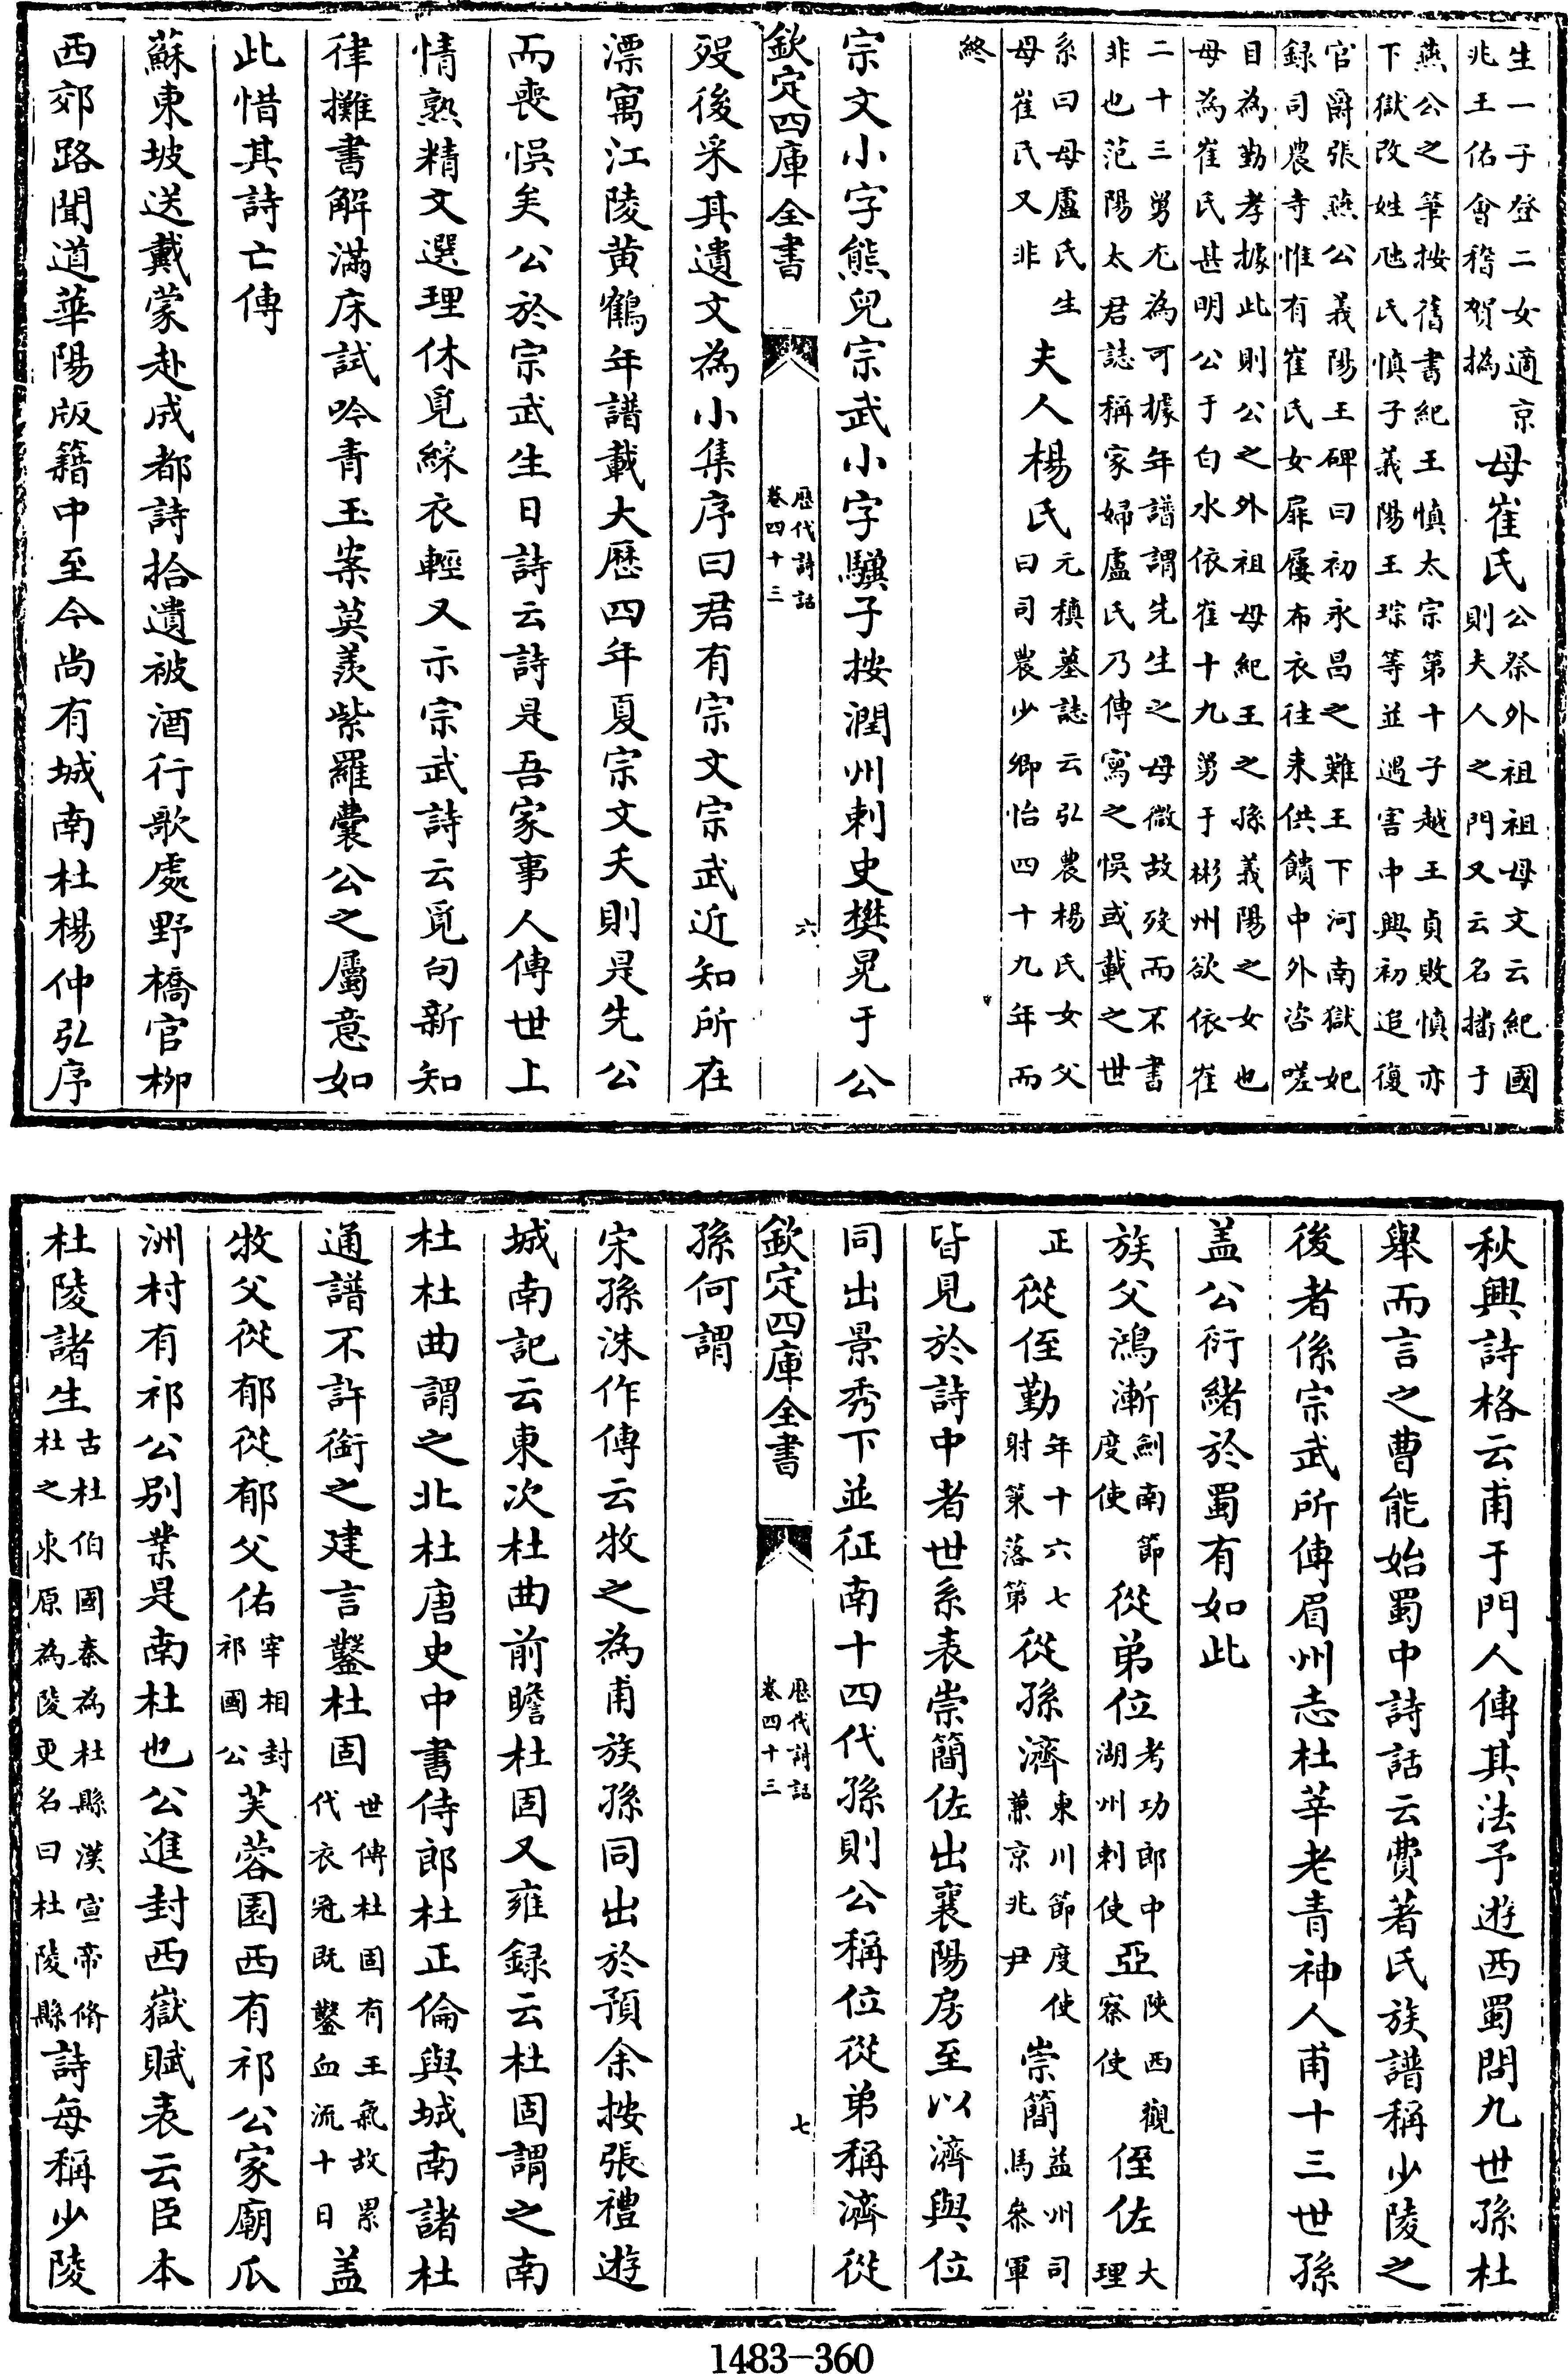 生一子登二女適京
兆王佑會稽賀撝
母崔氏
公祭外祖祖母文云紀國
則夫人之門又云名播于
燕公之筆按舊書紀王慎太宗第十子越王貞敗慎亦
下獄改姓虺氏慎子義陽王琮等並遇害中興初追復
官爵張燕公義陽王碑曰初永昌之難王下河南獄妃
録司農寺惟有崔氏女屝屨布衣往来供饋中外咨嗟
目為勤孝據此則公之外祖母紀王之孫義陽之女也
母為崔氏甚明公于白水依崔十九舅于彬州欲依崔
二十三舅尤為可據年譜謂先生之母微故殁而不書
非也范陽太君誌稱家婦盧氏乃傳寫之悞或載之世
系曰母盧氏生
母崔氏又非
夫人楊氏
元稹墓誌云弘農楊氏女父
曰司農少卿怡四十九年而
終
宗文小字熊兒宗武小字驥子按潤州刺史樊晃于公
欽定四庫全書
歴代詩話
卷四十三
六
殁後采其遺文為小集序曰君有宗文宗武近知所在
漂寓江陵黄鶴年譜載大厯四年夏宗文夭則是先公
而喪悞矣公於宗武生日詩云詩是吾家事人傳世上
情熟精文選理休覓綵衣輕又示宗武詩云覓句新知
律攤書解滿床試吟青玉案莫羨紫羅囊公之屬意如
此惜其詩亡傳
蘇東坡送戴蒙赴成都詩拾遺被酒行歌處野橋官柳
西郊路聞道華陽版籍中至今尚有城南杜楊仲弘序
秋興詩格云甫于門人傳其法予遊西蜀問九世孫杜
舉而言之曹能始蜀中詩話云費著氏族譜稱少陵之
後者係宗武所傳眉州志杜莘老青神人甫十三世孫
盖公衍緒於蜀有如此
族父鴻漸
劍南節
度使
從弟位
考功郎中
湖州刺使
亞
陝西觀
察使
侄佐
大
理
正
從侄勤
年十六七
射策落第
從孫濟
東川節度使
兼京兆尹
崇簡
益州司
馬叅軍
皆見於詩中者世系表崇簡佐出襄陽房至以濟與位
同出景秀下並征南十四代孫則公稱位從弟稱濟從
欽定四庫全書
歴代詩話
卷四十三
七
孫何謂
宋孫洙作傳云牧之為甫族孫同出於預余按張禮遊
城南記云東次杜曲前瞻杜固又雍録云杜固謂之南
杜杜曲謂之北杜唐史中書侍郎杜正倫與城南諸杜
通譜不許銜之建言鑿杜固
世傳杜固有王氣故累
代衣冠既鑿血流十日
盖
牧父從郁從郁父佑
宰相封
祁國公
芙蓉園西有祁公家廟瓜
洲村有祁公别業是南杜也公進封西嶽賦表云臣本
杜陵諸生
古杜伯國秦為杜縣漢宣帝脩
杜之東原為陵更名曰杜陵縣
詩每稱少陵
1483-360